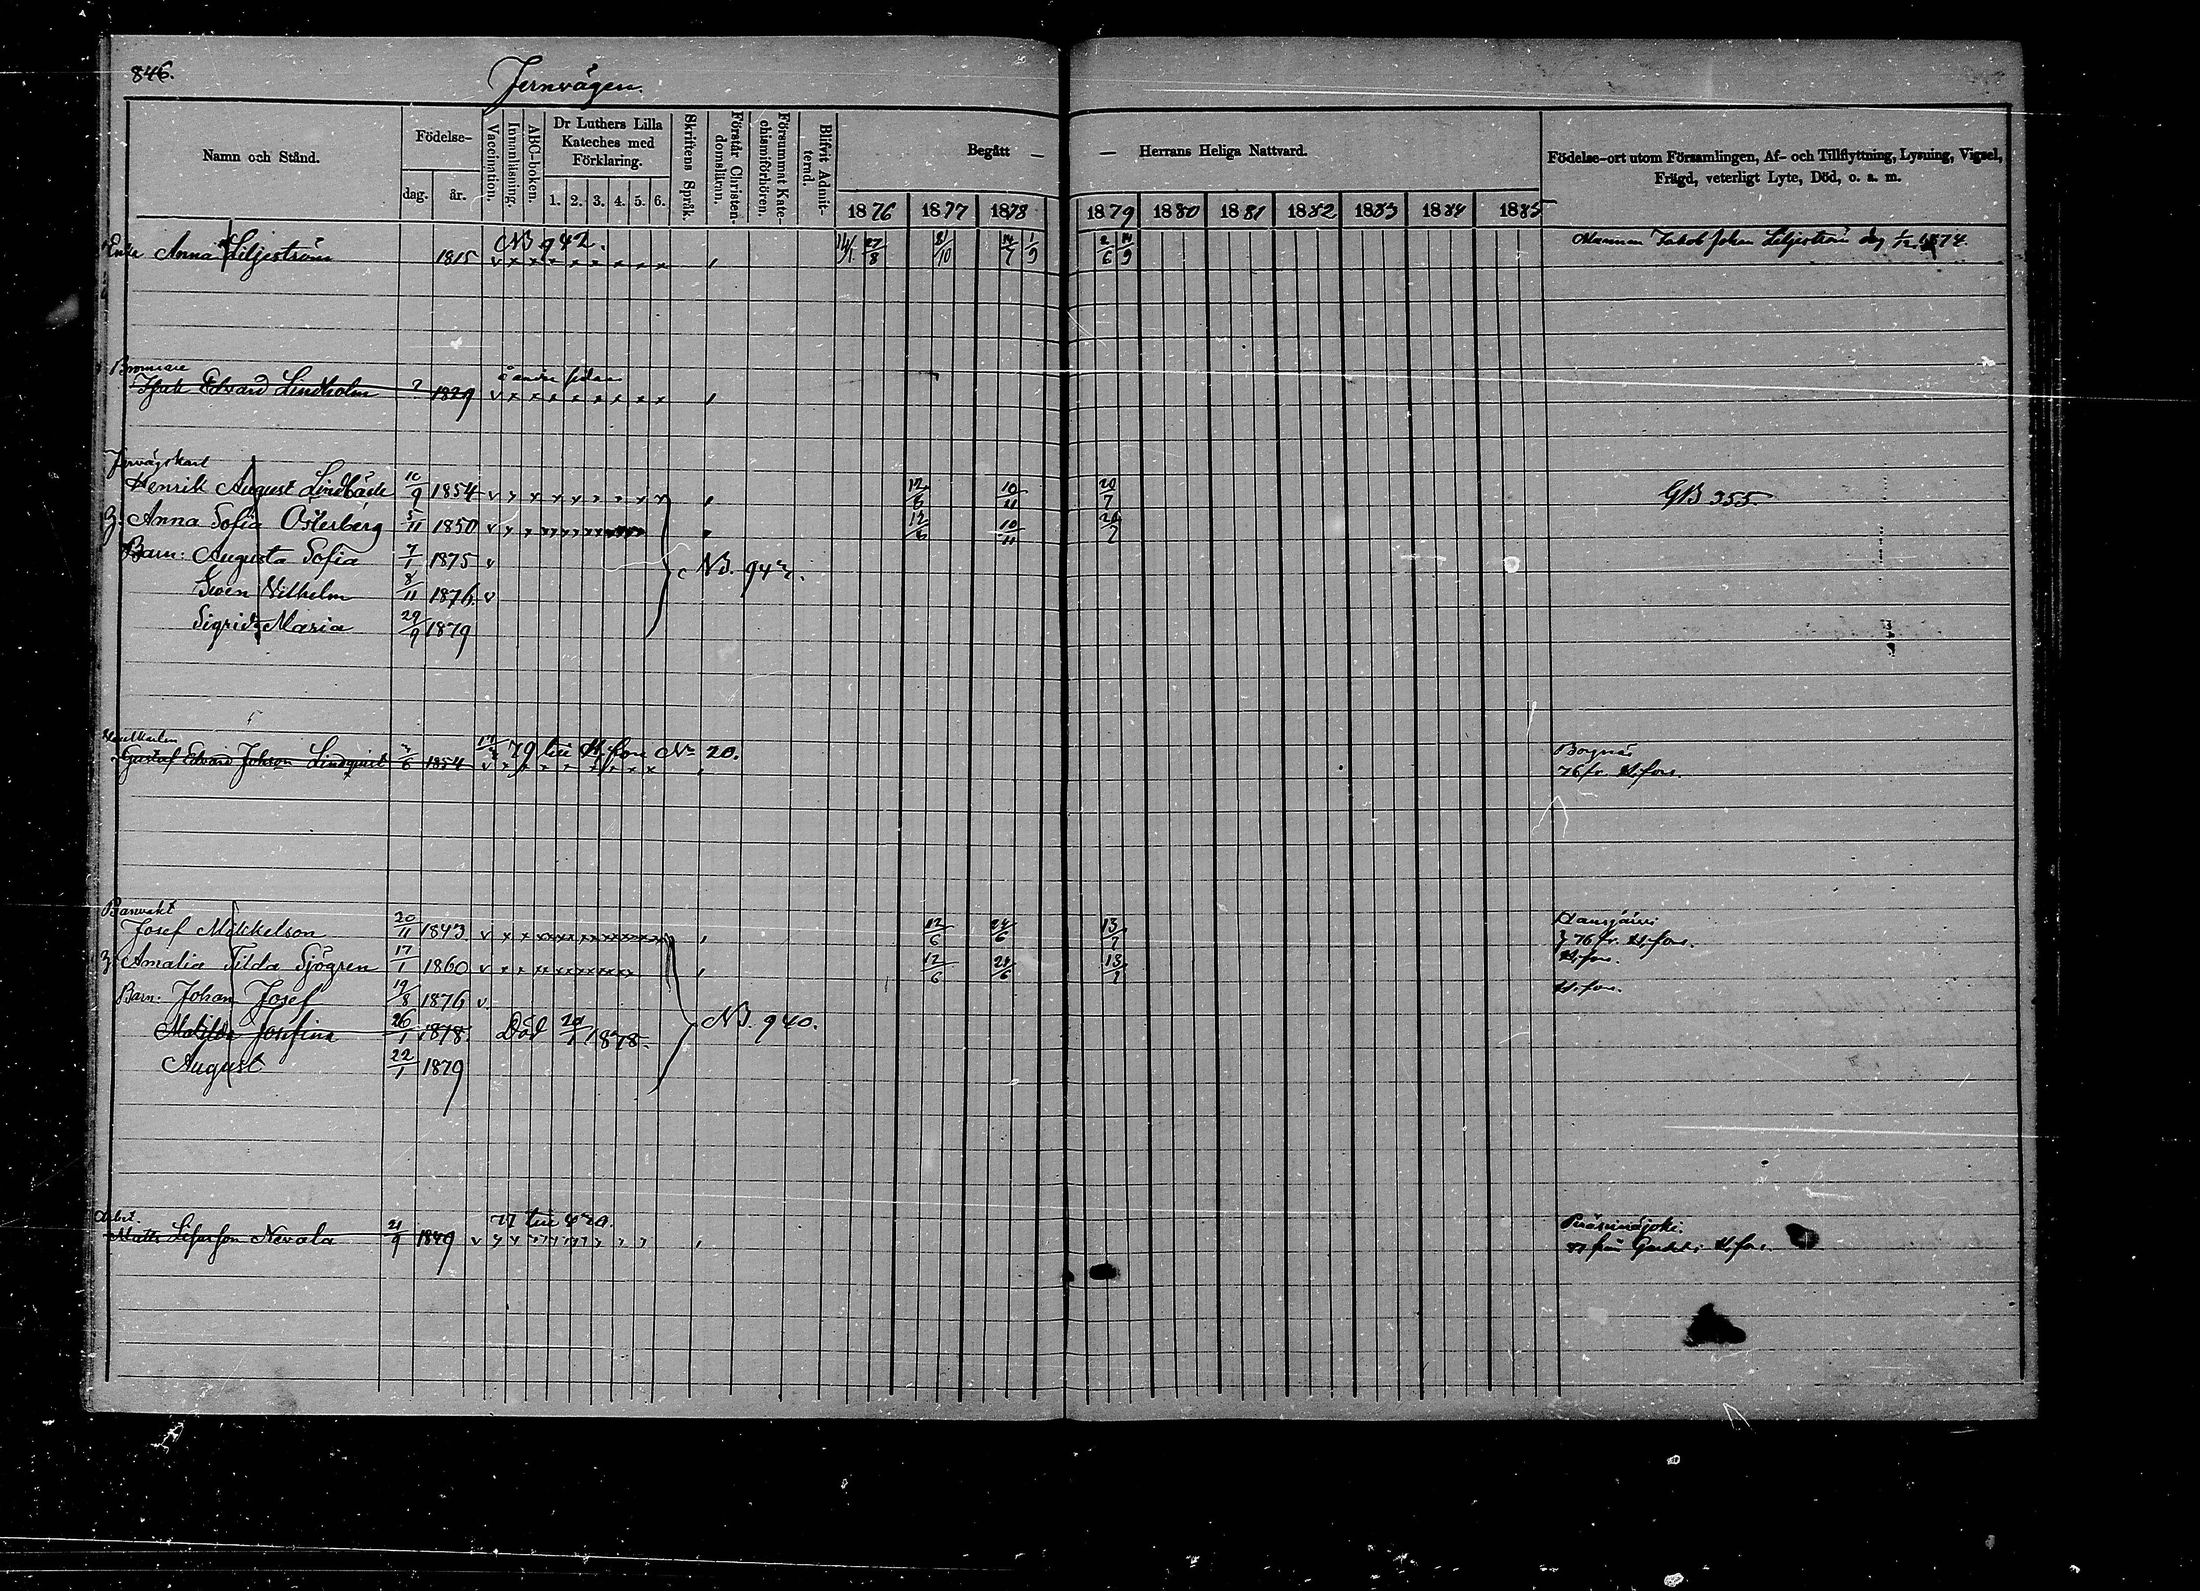 846.
Jernvägen.
Namn och Stånd.
Födelse-
dag.
år.
Vaccination.
Innanläsning.
ABC-boken.
Dr Luthers Lilla Kateches med Förklaring.
1. 2. 3. 4. 5. 6.
Skriftens Språk.
Förstår Christendomsläran.
Försummat Katechismiförhören.
Blifvit Admitterad.
Begått — — Herrans Heliga Nattvard.
1876 1877 1878 1879 1880 1881 1882 1883 1884 1885
Födelse-ort utom Församlingen, Af- och Tillflyttning, Lysning, Vigsel,
Frägd, veterligt Lyte, Död, o. s. m.
NB 942.
Enka Anna Liljeström 1815 14/1 27/8 8/10 14/7 1/9 2/6 14/9 Mannen Jakob Johan Liljeström
å andra sidan
Edvard Lindholm ? 1829
Henrik August Lindbäck 10/9 1854 12/6 10/11 20/7 GB 355.
Anna Sofia Österberg 5/11 1850 12/6 10/11 20/7
Barn: Augusta Sofia 7/1 1875 v NB. 942.
Sven Vilhelm 8/11 1876 v
Sigrid Maria 29/9 1879
79 till H:fors No 20.
Gustaf Edvard Johson Lindqvist 1854
76 fr. H:fors.
Banvakt
Josef Mikkelson 20/11 1843 12/6 24/6 13/7 76 fr. H:fors.
Amalia Tilda Sjögren 17/1 1860 12/6 24/6 13/7 H:fors.
Barn: Johan Josef 19/8 1876 v H:fors.
Matilda Josefina 26/1 1878 Död 1878. NB. 940.
August 22/1 1879
Arbet.
Matts Nevala 21/9 1849
Peräseinäjoki.
77 från H:fors.